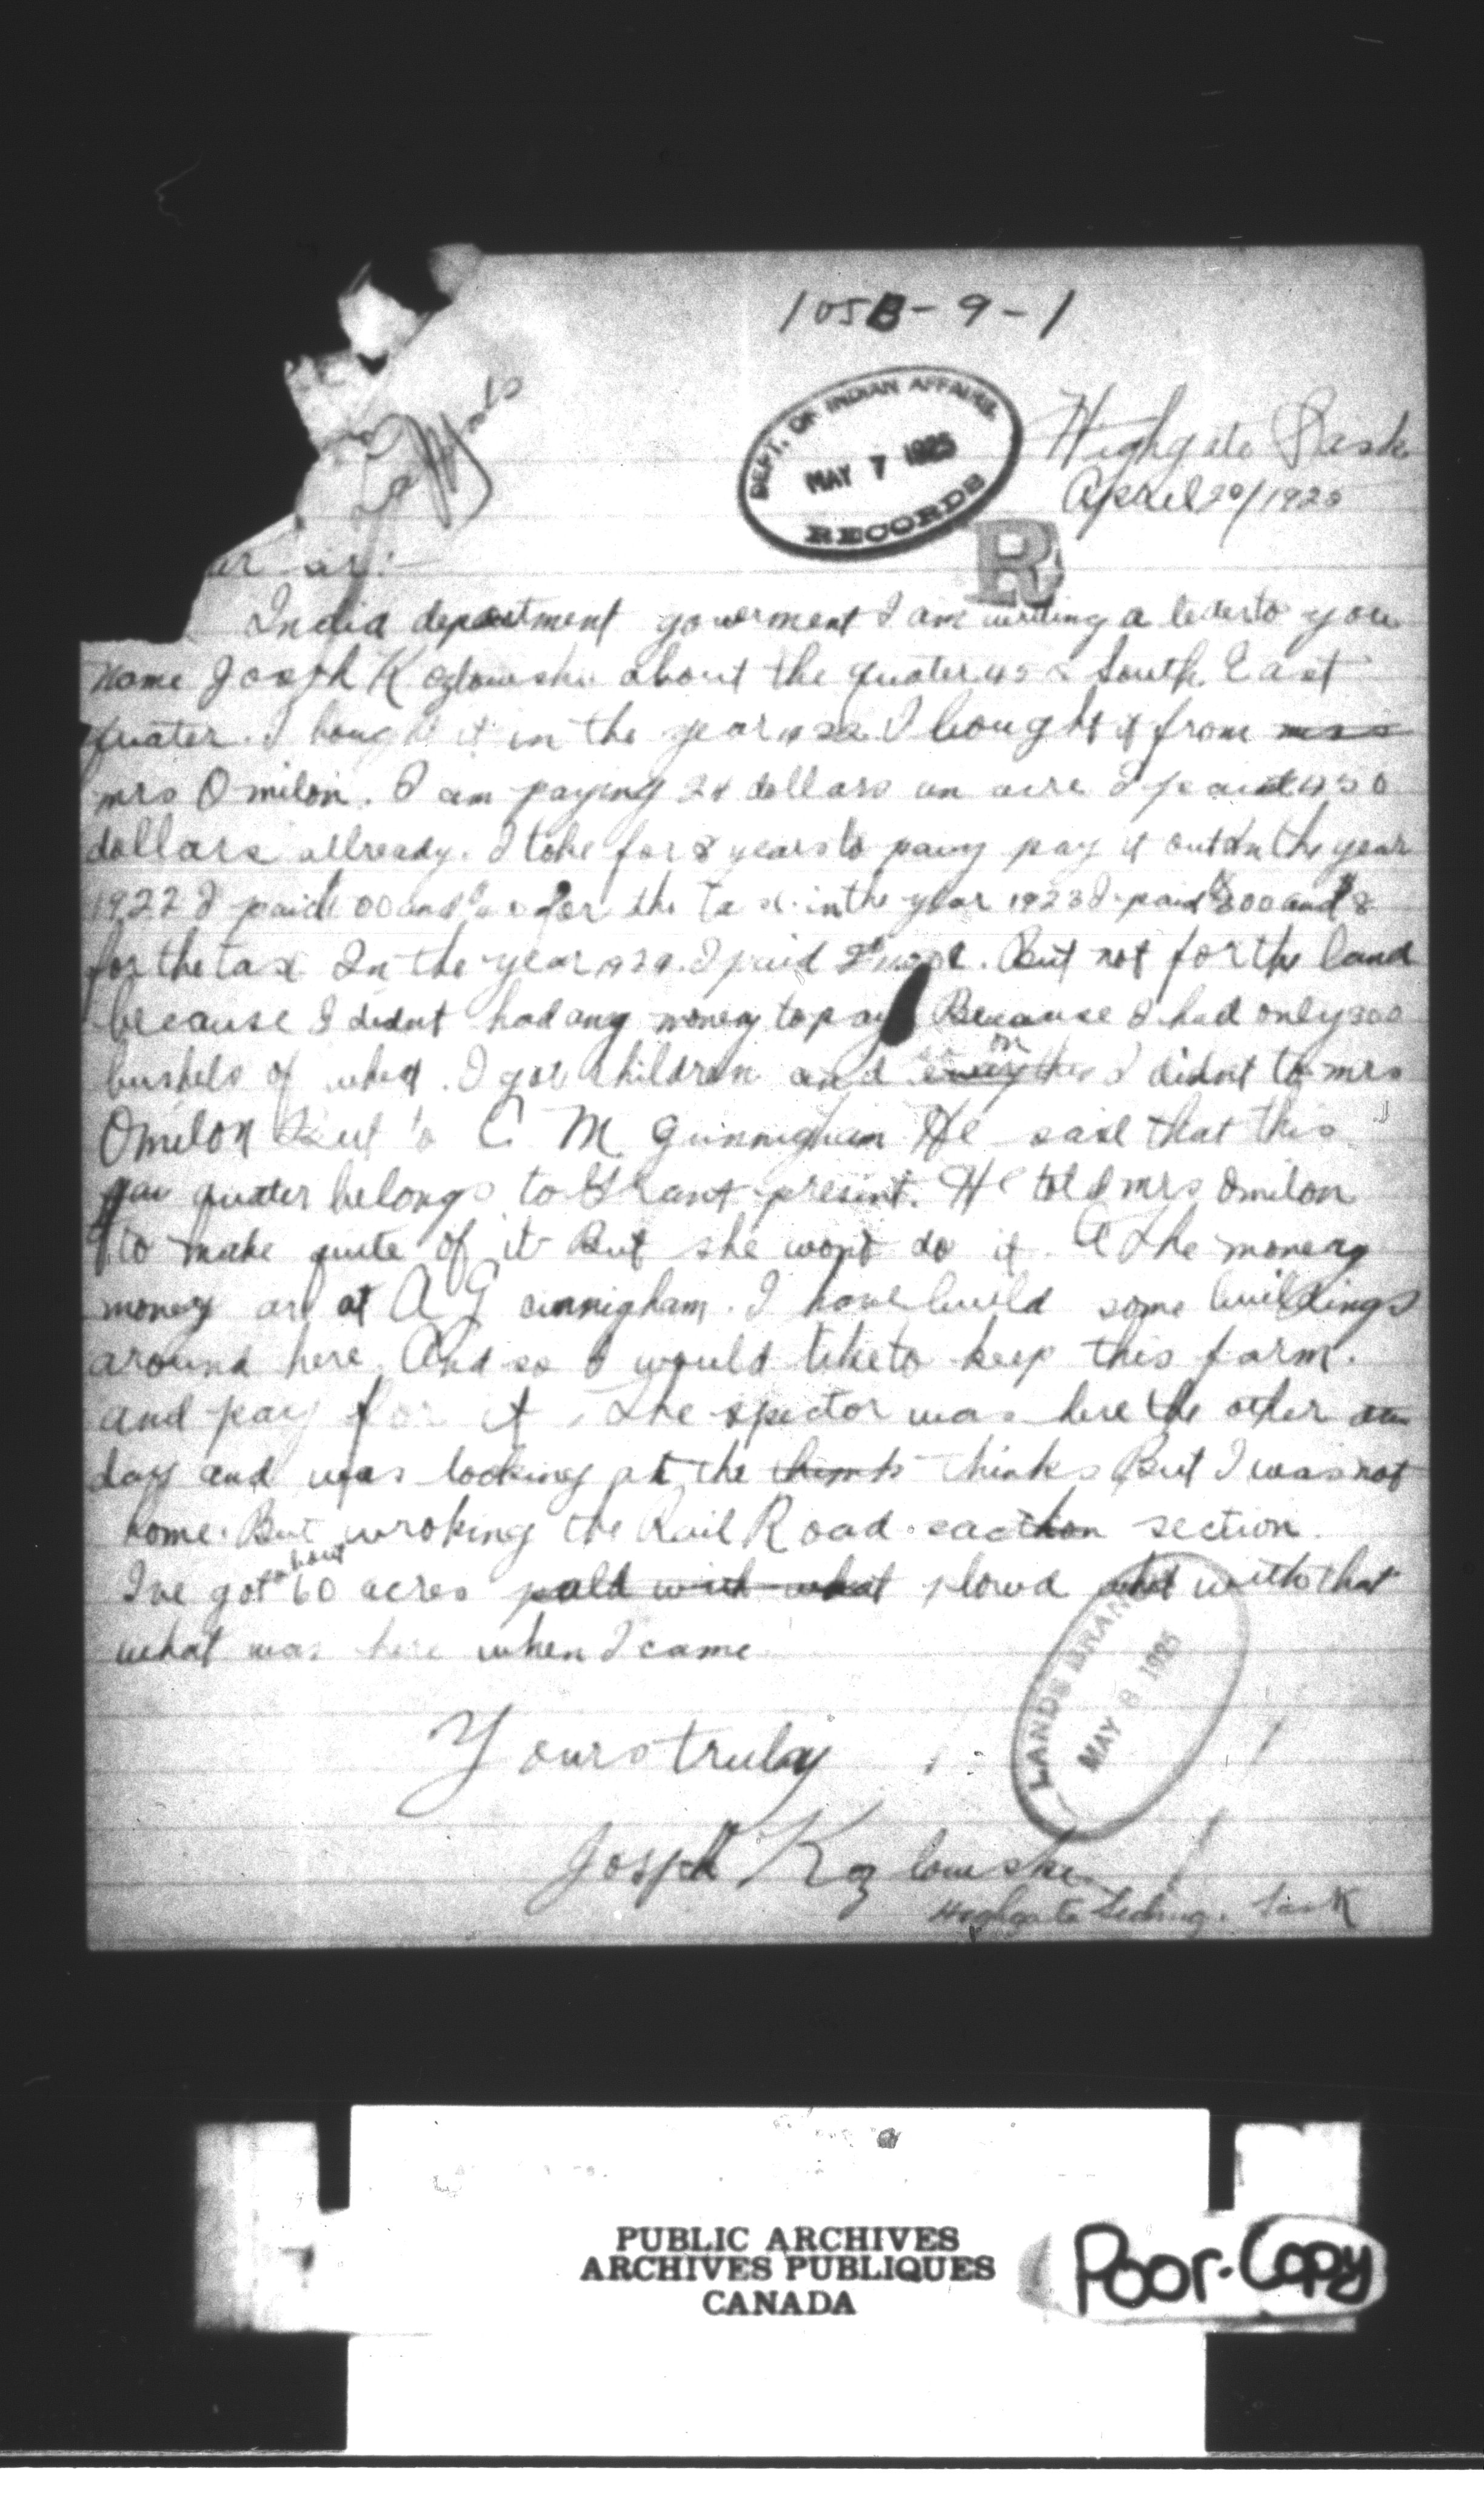 105B-9-1
DEPT. OF INDIAN AFFAIRS
MAY 7 1925
RECORDS
R
Highgate Sask
April 20/1925
ar sir:-
India department goverment I am writing a leter to you
name Joseph Kozlowski about the quater South East
quater. I bought it in the year 1922 I bought it from
mrs Omilon. I am paying 24 dollars an acre I paid 450
dollars allready. I take for 8 years to pay it out In the year
1922 I paid 00 and for the tax in the year 1923 I paid 300 and
for the tax In the year 1924. I paid . But not for the land
because I didnt had any money to pay Because I had only 300
bushels of whet. I got children and I didnt to mrs
Omilon But to C M Gunnigham He said that this
quater belongs to Grant present. He told mrs Omilon
to make quite of it But she wont do it. The money
money are at A G cunnigham. I have build some buildings
around here. And so I would like to keep this farm.
and pay for it. The spector was here the other
day and was looking at the thinks But I was not
home. But wroking the Rail Road section.
I've got about 60 acres plowd with that
what was here when I came
LANDS BRAN
MAY 8 1925
Yours truly
Joseph Kozlowski
Highgate Sideing. Sask
PUBLIC ARCHIVES
ARCHIVES PUBLIQUES
CANADA
Poor-Copy